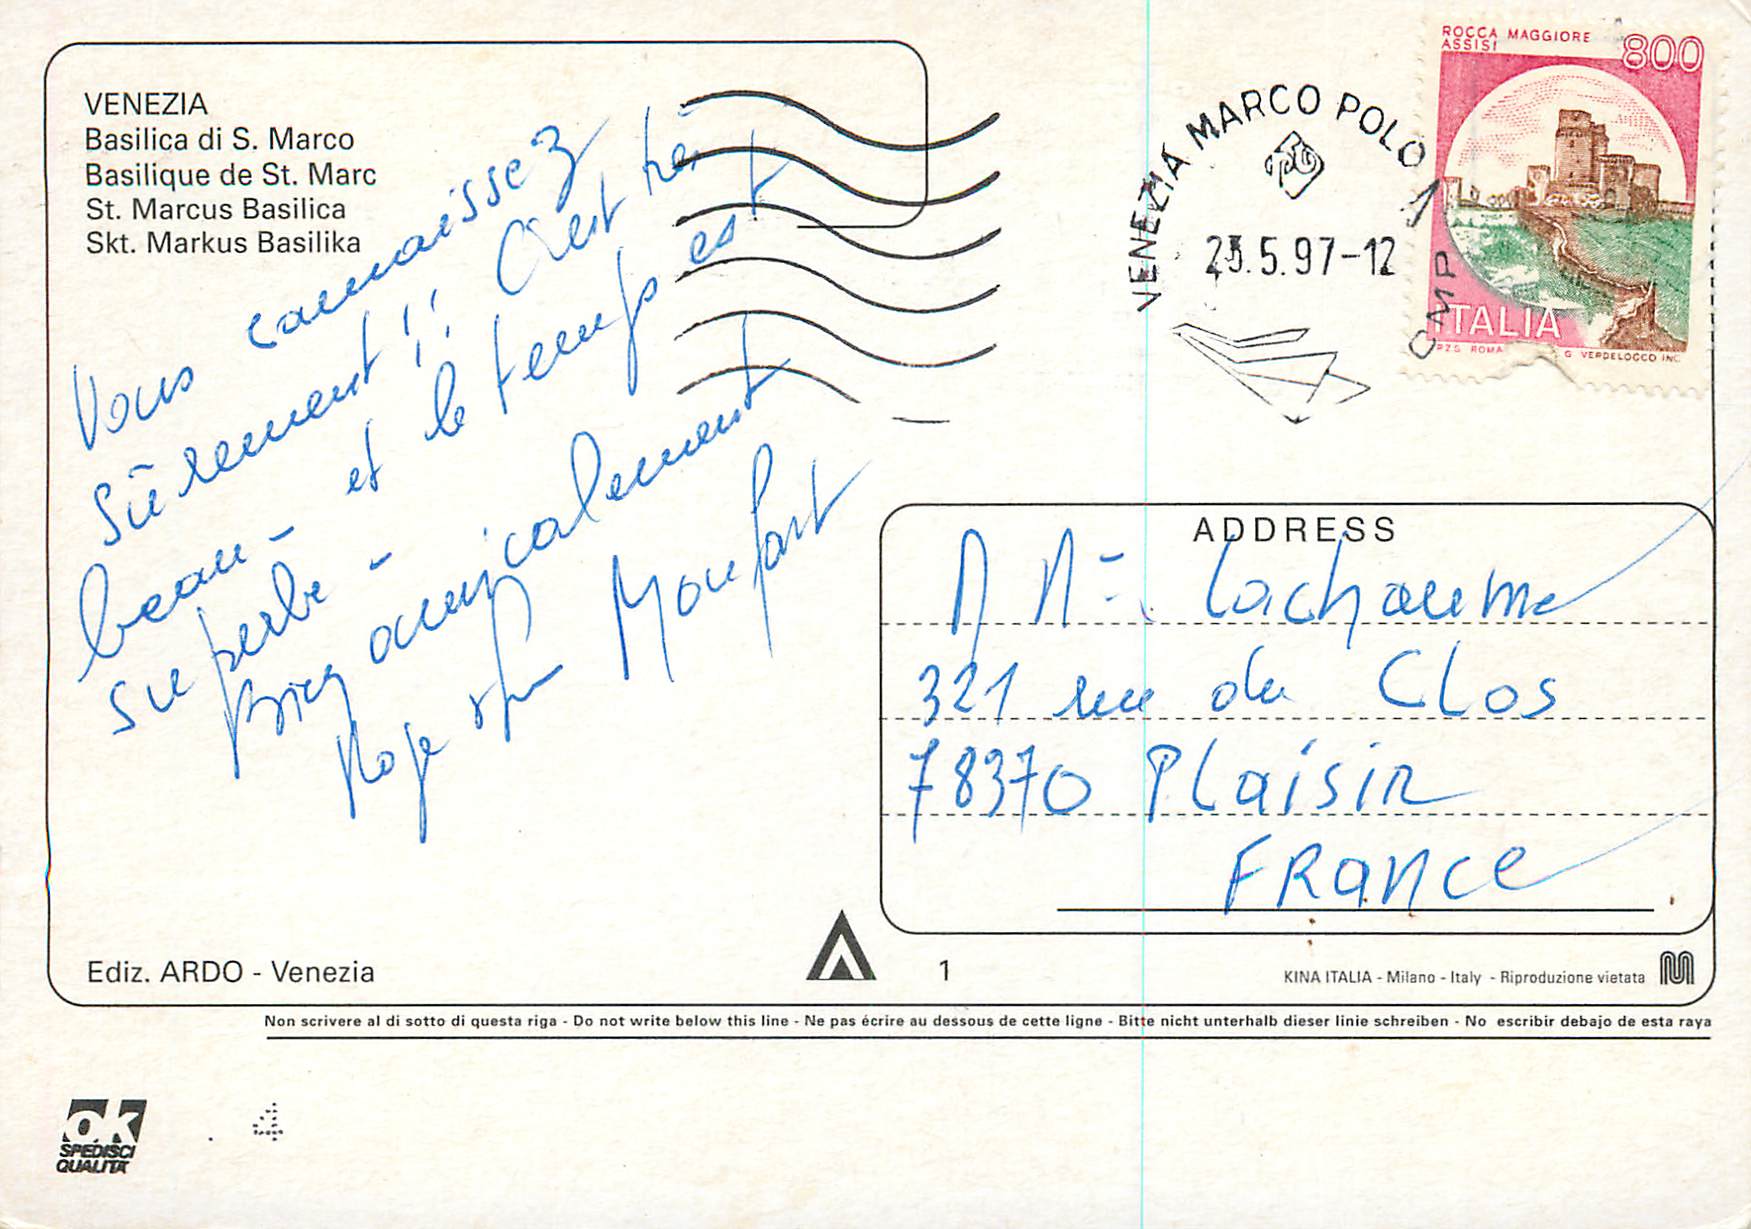 VENEZIA
Basilica di S. Marco
Basilique de St. Marc
St. Marcus Basilica
Skt. Markus Basilika
Vous connaissez
sûrement !! C'est très
beau - et le temps est
superbe -
Bien amicalement
Monfort
VENEZIA MARCO POLO
CMP
5.97-12
ROCCA MAGGIORE
ASSISI
800
ITALIA
P.Z.S. ROMA
G. VERDELOCCO INC.
ADDRESS
Lachaume
321 rue du Clos
78370 Plaisir
FRANCE
Ediz. ARDO - Venezia
1
KINA ITALIA - Milano - Italy - Riproduzione vietata
Non scrivere al di sotto di questa riga - Do not write below this line - Ne pas écrire au dessous de cette ligne - Bitte nicht unterhalb dieser linie schreiben - No escribir debajo de esta raya
ok
SPEDISCI
QUALITA'
4